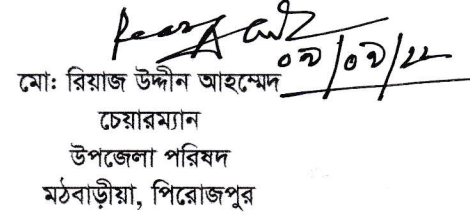 ০৯/০৯/২২
মো: রিয়াজ উদ্দীন আহম্মেদ
চেয়ারম্যান
উপজেলা পরিষদ
মঠবাড়ীয়া, পিরোজপুর